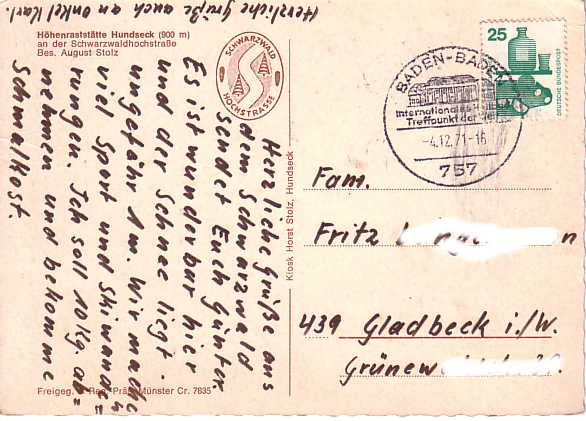 Herzliche Grüße auch an Onkel Karl.
Höhenraststätte Hundseck (900 m)
an der Schwarzwaldhochstraße
Bes. August Stolz
SCHWARZWALD
HOCHSTRASSE
Herzliche Grüße aus
dem Schwarzwald
sendet Euch Günter
Es ist wunderbar hier
und der Schnee liegt
ungefähr 1m. Wir machen
viel Sport und Skiwande=
rungen. Ich soll 10 Kg. ab=
nehmen und bekomme
Schmalkost.
Freigeg. Reg. Präs. Münster Cr. 7835
Kiosk Horst Stolz, Hundseck
25
DEUTSCHE BUNDESPOST
BADEN-BADEN
Internationaler
Treffpunkt der
-4.12.71-16
757
Fam.
Fritz
439 Gladbeck i./W.